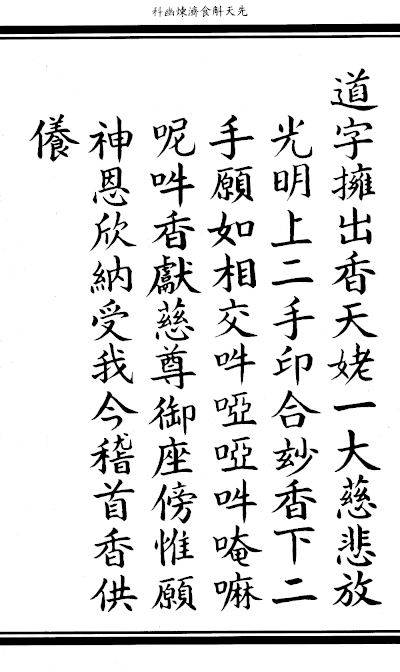 先天斛食濟煉幽科
道字擁出香天姥一大慈悲放
光明上二手印合玅香下二
手願如相交吽啞啞吽唵嘛
呢吽香獻慈尊御座傍惟願
神恩欣納受我今稽首香供
儀